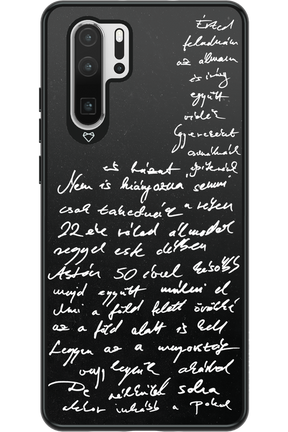 Érted
feladnám
az álmaim
és még
együtt
vidék
Gyerekeket
csinálnánk
és házat építenénk
Nem is hiányozna semmi
csak takednád a réten
22 éve rólad álmodok
reggel este délben
Aztán 50 évvel később
majd együtt múlni el
Mint a föld felett örökké
az a föld alatt is kell
Legyen az a mennyország
vagy legyünk akárhol
De nélküled soha
akkor inkább a Pokol